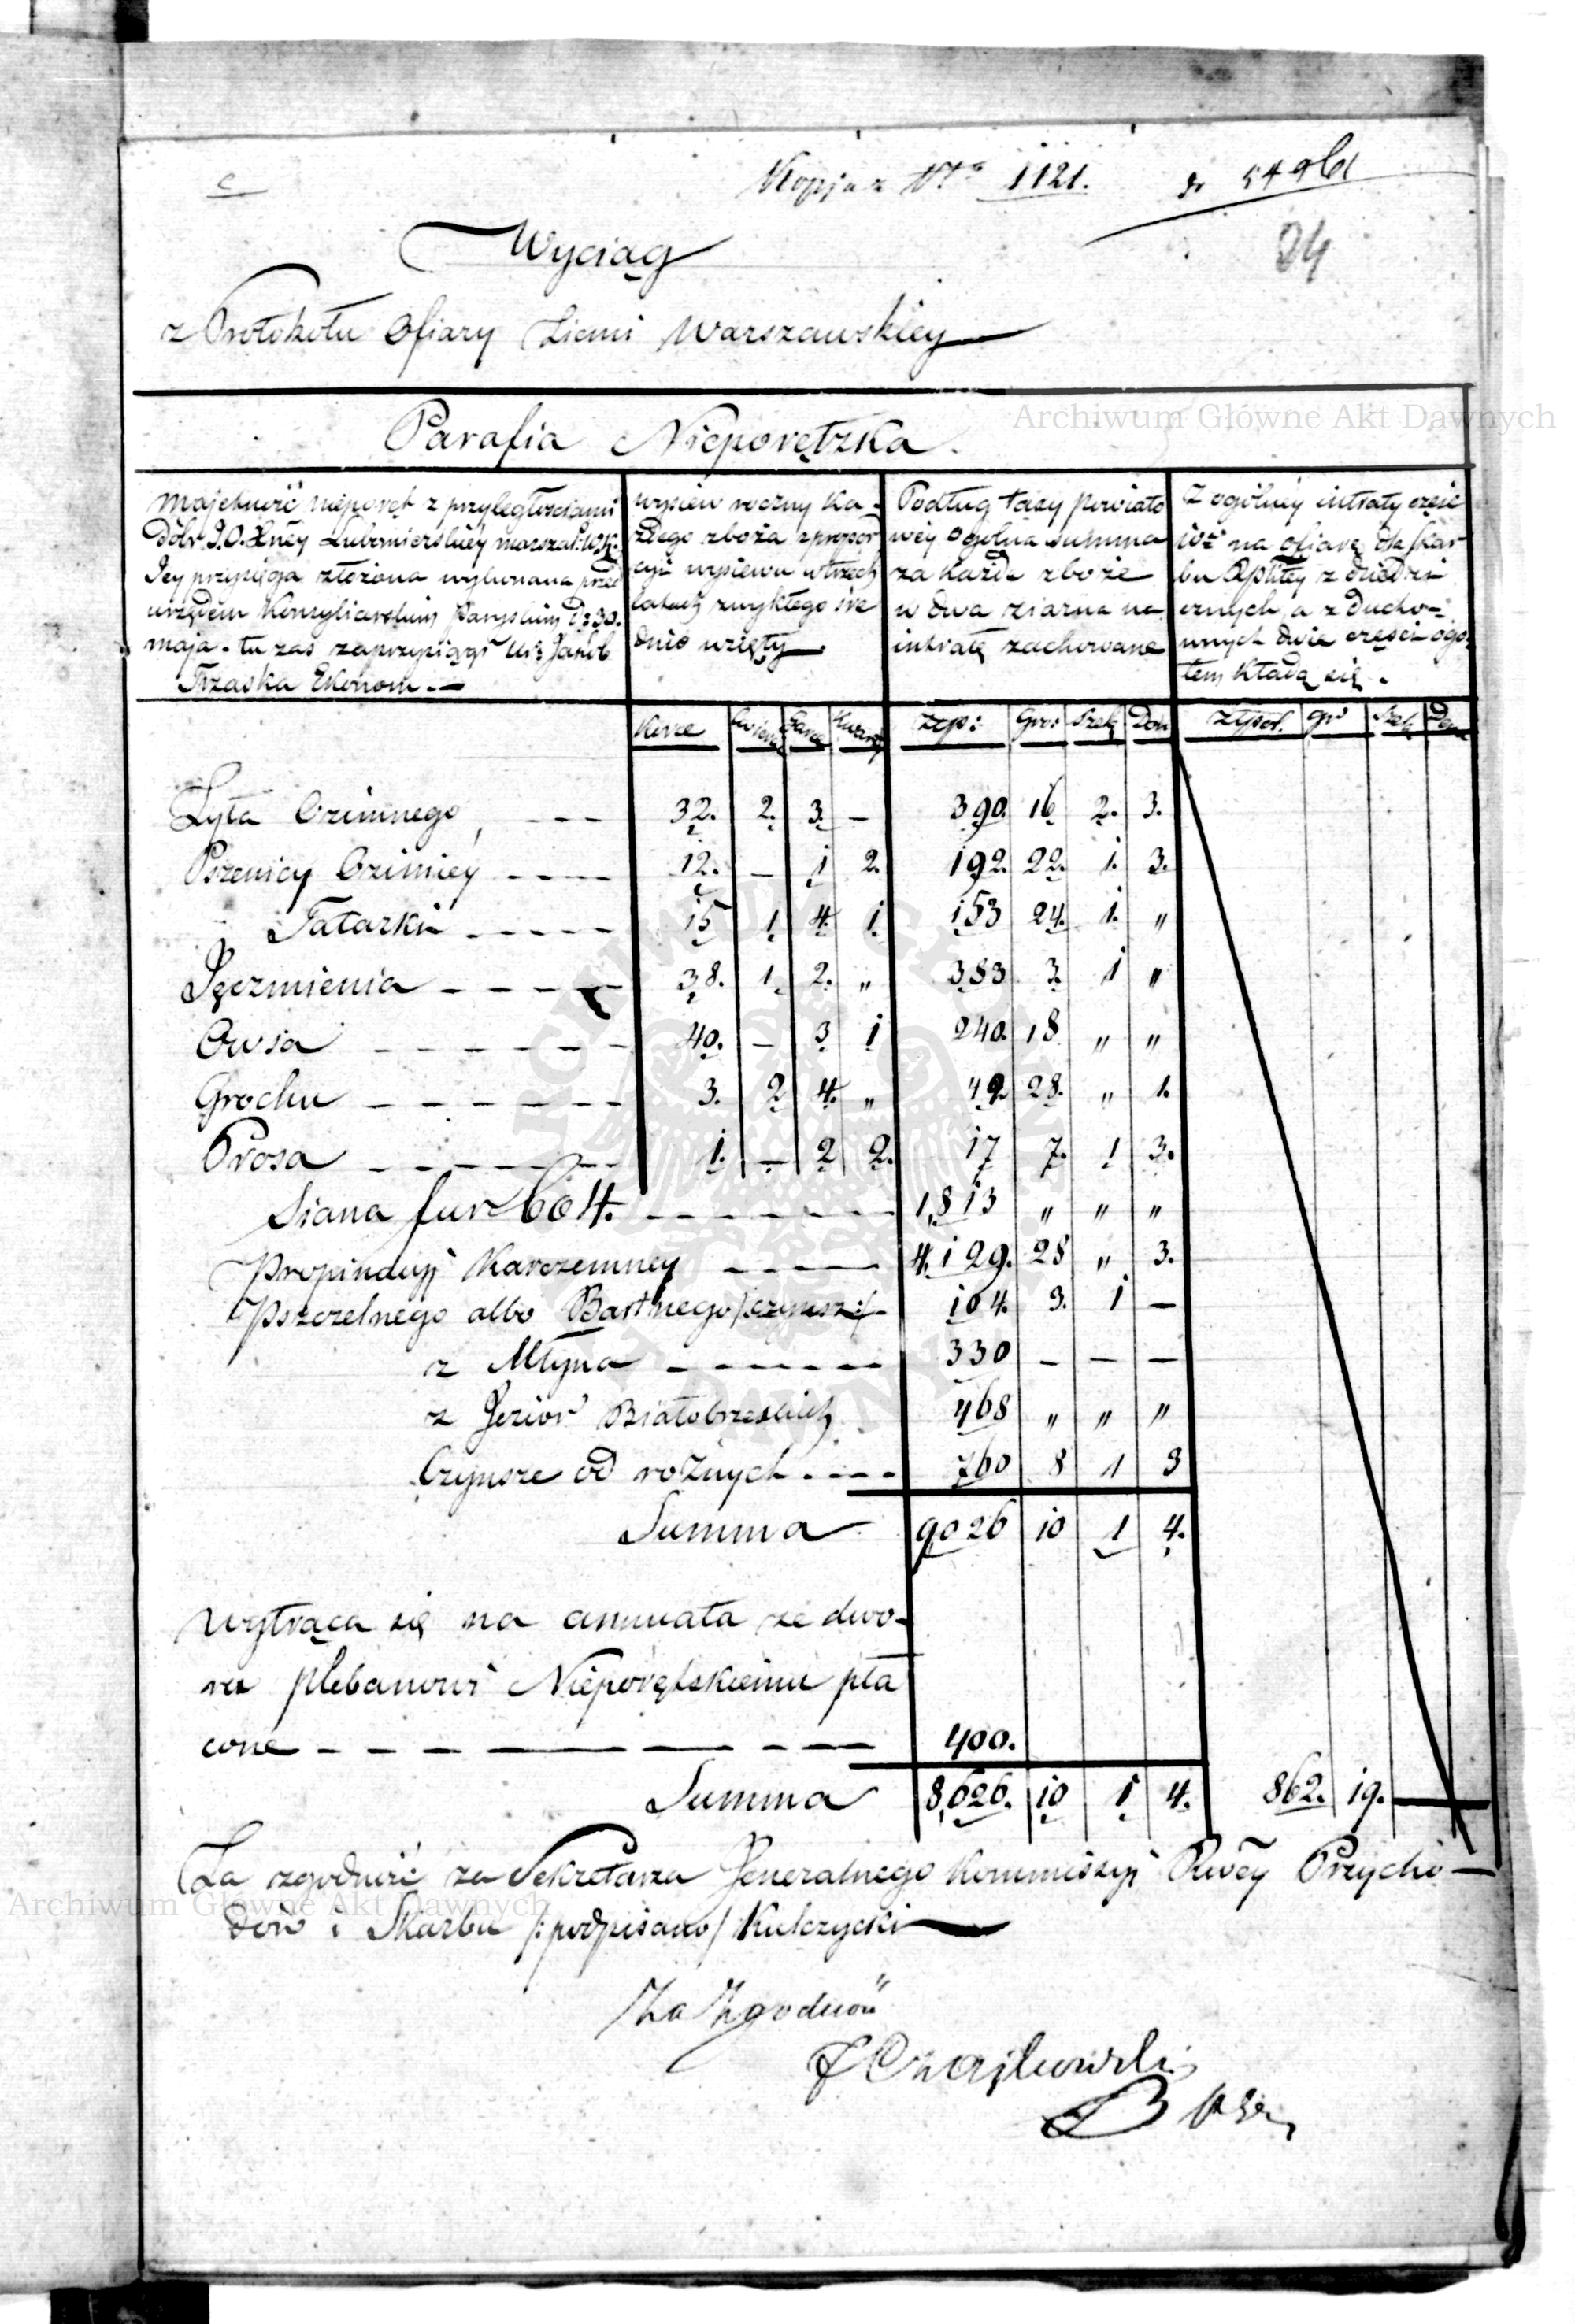 c
Kopja z Nro 1121. do 549b/
84
Wyciąg
z Protokołu Ofiary Ziemi Warszawskiey
Archiwum Główne Akt Dawnych
Parafia Nieporętzka.
Majętność nieporęt z przyległosciami
Dóbr J.O. Xney Lubomierskiéy marszał: W.K.
Jey przysięga złożona wykonana przed
urzędem Konsyliarskim Paryskim D: 30.
maja. tu zas zaprzysiągł Ur: Jakób
Trzaska Ekonom.
wysiew roczny ka-
żdego zboża z propor
cyi wysiewu w trzech
latach zwykłego śre
dnio wzięty
Podług taxy powiato
wéy ogólna summa
za każde zboże
w dwa ziarna na
intratę zachowane
Z ogólnéy intraty częśc
iów na ofiarę dla skar
bu Rplitéy z dziedzi
cznych, a z ducho-
wnych dwie części ogo-
łem kładą się.
Korce Cwierc Garce Kwart Złp: Gro: Szelą Den Złpol. gr Szelą Den
Żyta Ozimnego, 32. 2. 3. — 390. 16 2. 3.
Pszenicy Ozimiéy 12. — 1 2. 192. 22. 1. 3.
Tatarki 15 1 4. 1. 153 24. 1. "
Jęczmienia 38. 1. 2. " 383 3. 1 "
Owsa 40. — 3 1 240. 18 " "
Grochu 3. 2 4. " 49. 28. " 1.
Prosa 1. — 2 2. 17 7. 1 3.
Siana fur 604. 1,813 " " "
Propinacyi Karczemney 4,129. 28 " 3.
Pszczelnego albo Bartnego /:czynsz:/ 104. 3. 1 —
z Młyna 330 — — —
z Jezior Białobrzeskich 468 " " "
Czynsze od rożnych 760 8 1 3
Summa 9026 10 1 4.
Wytrąca się na annuata ze dwo-
ru plebanowi Nieporętskiemu pła
cone 400.
Summa 8,626. 10 1 4. 862. 19.
Za zgodność za Sekretarza Jeneralnego Kommissyi Rwéy Przycho-
dów i Skarbu /:podpisano/ Kulczycki
Archiwum Główne Akt Dawnych
Za Zgodność